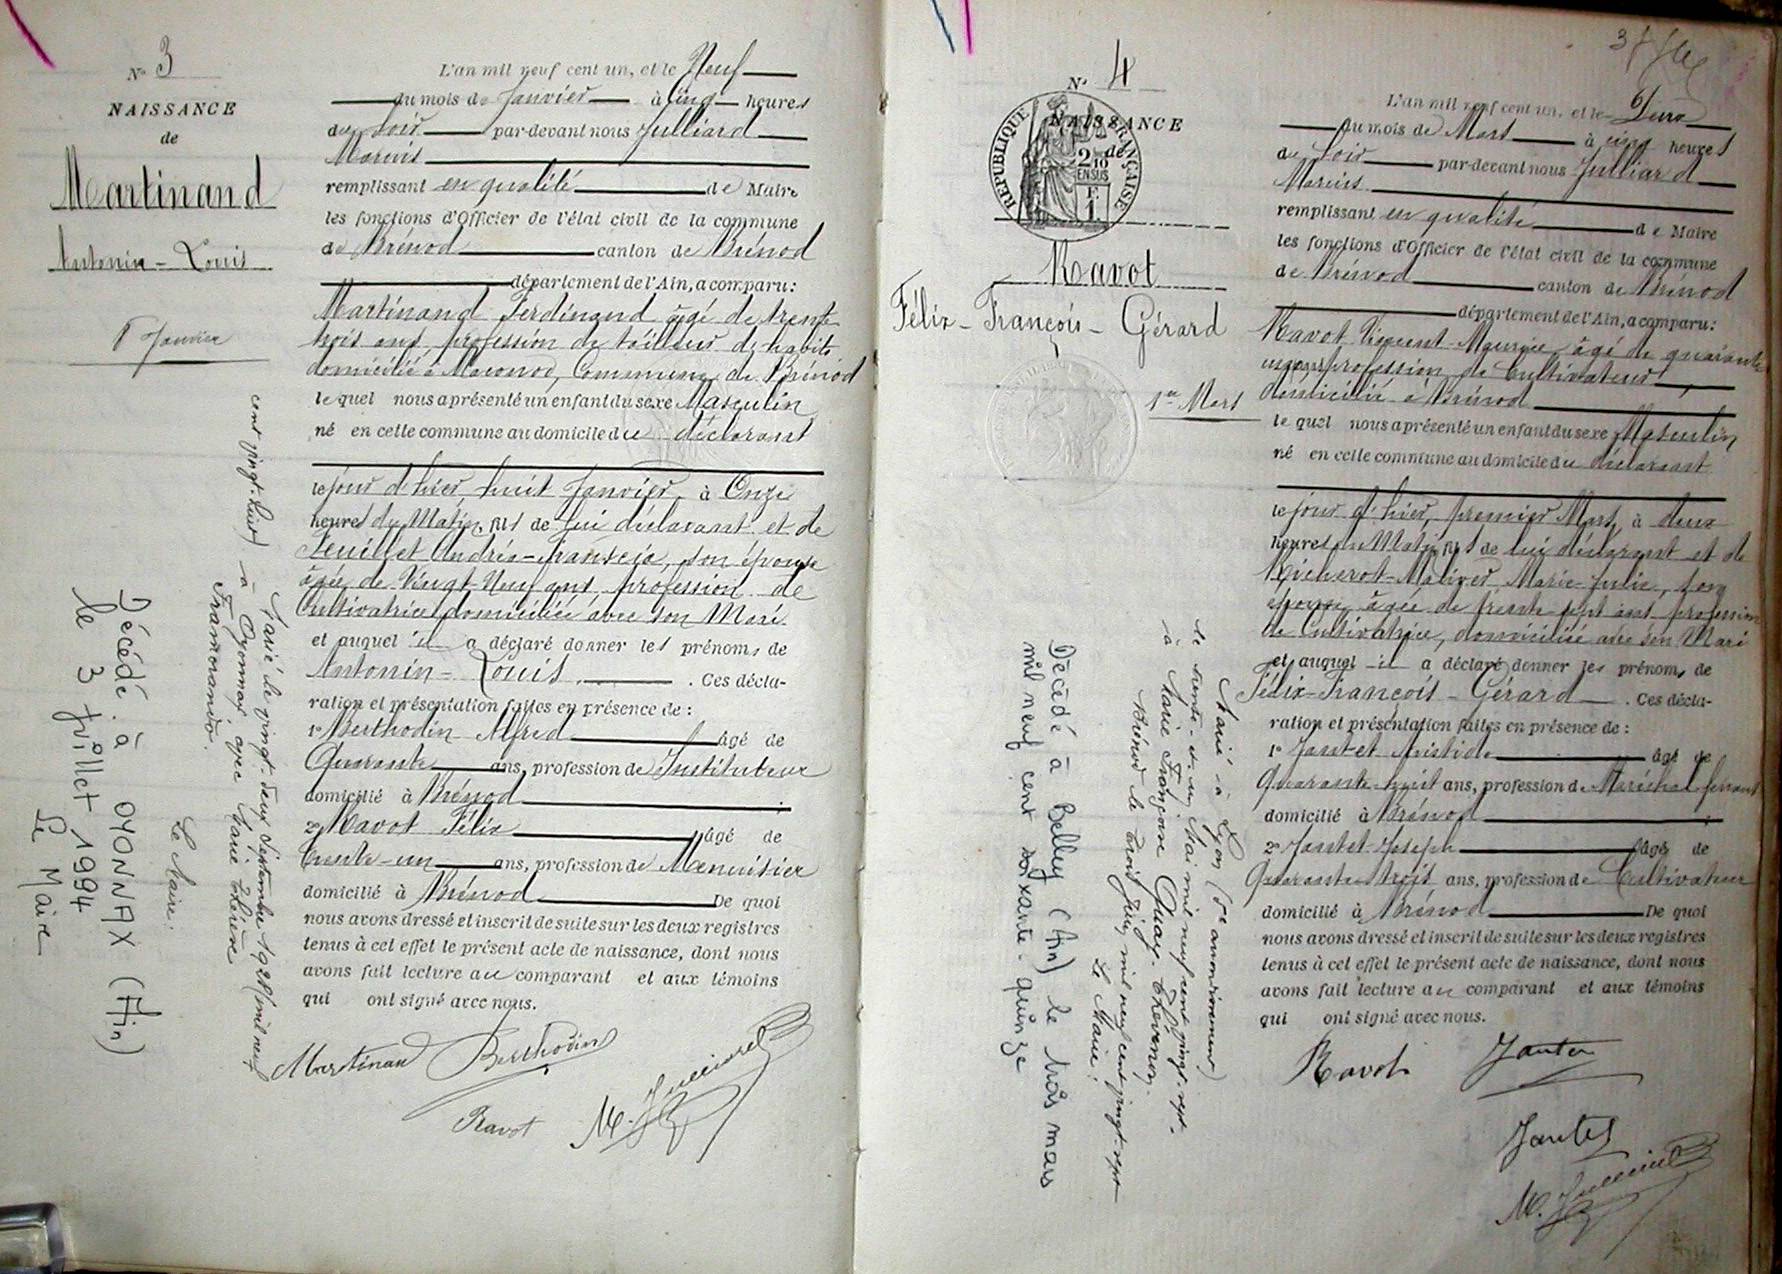 N° 3
NAISSANCE
de
Martinand
Antonin - Louis
8 Janvier
L'an mil neuf cent un, et le Neuf
du mois de Janvier à Cinq heures
du Soir par-devant nous Julliard
Marius
remplissant en qualité de Maire
les fonctions d'Officier de l'état civil de la commune
de Brénod canton de Brénod
département de l'Ain, a comparu:
Martinand Ferdinand âgé de trente
trois ans, profession de tailleur d'habits
domicilié à Macconod, Commune de Brénod
lequel nous a présenté un enfant du sexe Masculin
né en cette commune au domicile du déclarant
le jour d'hier huit Janvier, à Onze
heures du Matin, fils de lui déclarant et de
Feuillet Andréa-Francéia, son épouse
âgée de Vingt-Neuf ans, profession de
Cultivatrice domiciliée avec son Mari
et auquel il a déclaré donner les prénoms de
Antonin - Louis. Ces décla-
ration et présentation faites en présence de :
1° Berthodin Alfred âgé de
Quarante ans, profession de Instituteur
domicilié à Brénod
2° Ravot Félix âgé de
trente-un ans, profession de Menuisier
domicilié à Brénod De quoi
nous avons dressé et inscrit de suite sur les deux registres
tenus à cet effet le présent acte de naissance, dont nous
avons fait lecture au comparant et aux témoins
qui ont signé avec nous.
Martinand Berthodin
Ravot M. Julliard
Marié le vingt-deux Septembre 1928 (mil neuf
cent vingt-huit) à Oyonnax avec Marie Thérèse
Framorando.
Le Maire :
Décédé à OYONNAX (Ain)
le 3 juillet 1994
Le Maire
37
N° 4
NAISSANCE
de
REPUBLIQUE FRANÇAISE
2/10 EN SUS
F 1
Ravot
Félix - François - Gérard
1er Mars
L'an mil neuf cent un, et le Deux
du mois de Mars à cinq heures
du Soir par-devant nous Julliard
Marius
remplissant en qualité de Maire
les fonctions d'Officier de l'état civil de la commune
de Brénod canton de Brénod
département de l'Ain, a comparu:
Ravot Vincent Maurice âgé de quarante
un ans profession de Cultivateur
domicilié à Brénod
lequel nous a présenté un enfant du sexe Masculin
né en cette commune au domicile du déclarant
le jour d'hier, premier Mars, à deux
heures du Matin, fils de lui déclarant et de
Marie-Julie, son
épouse, âgée de trente-sept ans profession
de Cultivatrice, domiciliée avec son Mari
et auquel il a déclaré donner les prénoms de
Félix-François - Gérard. Ces décla-
ration et présentation faites en présence de :
1° Jantet Aristide âgé de
Quarante-huit ans, profession de Maréchal ferrant
domicilié à Brénod
2° Jantet Joseph âgé de
Quarante trois ans, profession de Cultivateur
domicilié à Brénod De quoi
nous avons dressé et inscrit de suite sur les deux registres
tenus à cet effet le présent acte de naissance, dont nous
avons fait lecture au comparant et aux témoins
qui ont signé avec nous.
Ravot Jantet
Jantet
M. Julliard
Marié à Lyon (5e arrondissement)
le trente-et-un Mai mil neuf cent vingt-sept
à Marie Françoise Quay-Thévenon.
Brénod le trois Juin mil neuf cent vingt-sept
Le Maire :
Décédé à Belley (Ain) le trois mars
mil neuf cent soixante-quinze